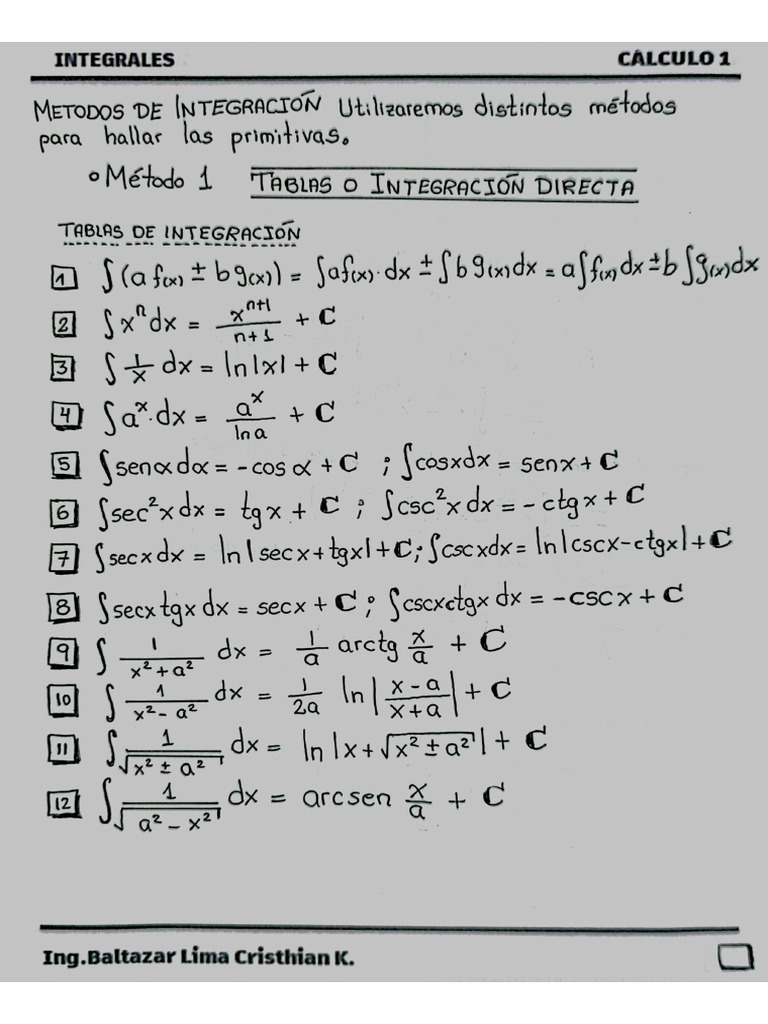 INTEGRALES CÁLCULO 1
METODOS DE INTEGRACIÓN Utilizaremos distintos métodos
para hallar las primitivas.
• Método 1 TABLAS O INTEGRACIÓN DIRECTA
TABLAS DE INTEGRACIÓN
1 ∫(a f(x) ± b g(x)) = ∫af(x)·dx ± ∫b g(x)dx = a∫f(x)dx ± b∫g(x)dx
2 ∫xⁿdx = xⁿ⁺¹/n+1 + C
3 ∫1/x dx = ln|x| + C
4 ∫aˣ·dx = aˣ/ln a + C
5 ∫senα dα = -cos α + C ; ∫cosxdx = senx + C
6 ∫sec²x dx = tgx + C ; ∫csc²x dx = -ctgx + C
7 ∫secx dx = ln|secx+tgx|+C ; ∫cscxdx = ln|cscx-ctgx|+C
8 ∫secx tgx dx = secx + C ; ∫cscxctgx dx = -cscx + C
9 ∫ 1/x²+a² dx = 1/a arctg x/a + C
10 ∫ 1/x²-a² dx = 1/2a ln|x-a/x+a| + C
11 ∫ 1/√x²±a² dx = ln|x+√x²±a²| + C
12 ∫ 1/√a²-x² dx = arcsen x/a + C
Ing.Baltazar Lima Cristhian K.